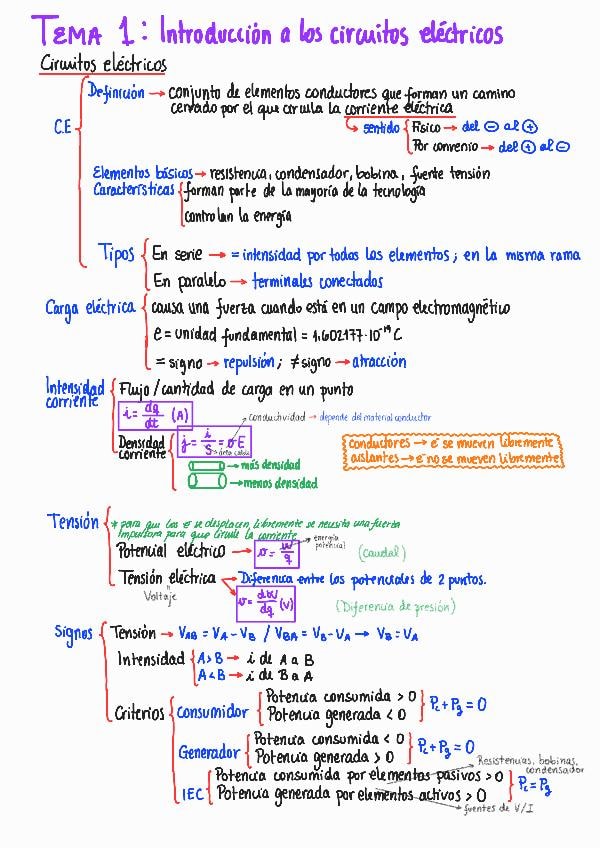 TEMA 1: Introducción a los circuitos eléctricos
Circuitos eléctricos
C.E
Definición → conjunto de elementos conductores que forman un camino
cerrado por el que circula la corriente eléctrica
sentido
Físico → del ⊖ al ⊕
Por convenio → del ⊕ al ⊖
Elementos básicos → resistencia, condensador, bobina, fuente tensión
Características
forman parte de la mayoría de la tecnología
controlan la energía
Tipos
En serie → = intensidad por todos los elementos; en la misma rama
En paralelo → terminales conectados
Carga eléctrica
causa una fuerza cuando está en un campo electromagnético
e = unidad fundamental = 1,602177·10⁻¹⁹ C
= signo → repulsión; ≠ signo → atracción
Intensidad
corriente
Flujo / cantidad de carga en un punto
i = dq/dt (A)
conductividad → depende del material conductor
Densidad
corriente
j = i/S = σE
área cable
→ más densidad
→ menos densidad
conductores → e⁻ se mueven libremente
aislantes → e⁻ no se mueven libremente
Tensión
* para que los e⁻ se desplacen libremente se necesita una fuerza
impulsora para que circule la corriente
Potencial eléctrico → v = w/q
energía
potencial
(caudal)
Tensión eléctrica → Diferencia entre los potenciales de 2 puntos.
Voltaje
v = dW/dq (V)
(Diferencia de presión)
Signos
Tensión → V_AB = V_A - V_B / V_BA = V_B - V_A → V_B = V_A
Intensidad
A > B → i de A a B
A < B → i de B a A
Criterios
Consumidor
Potencia consumida > 0
Potencia generada < 0
P_c + P_g = 0
Generador
Potencia consumida < 0
Potencia generada > 0
P_c + P_g = 0
Resistencias, bobinas,
condensador
IEC
Potencia consumida por elementos pasivos > 0
Potencia generada por elementos activos > 0
P_c = P_g
fuentes de V/I